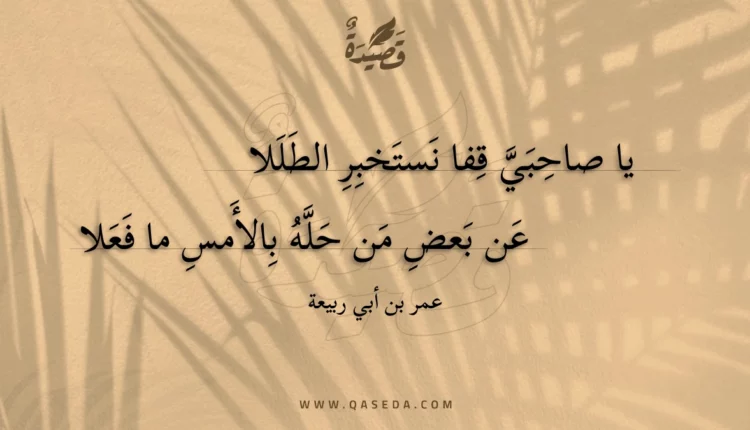 قَصِيْدَةٌ
يا صاحِبَيَّ قِفا نَستَخبِرِ الطَلَلا
عَن بَعضِ مَن حَلَّهُ بِالأَمسِ ما فَعَلا
عمر بن أبي ربيعة
WWW.QASEDA.COM